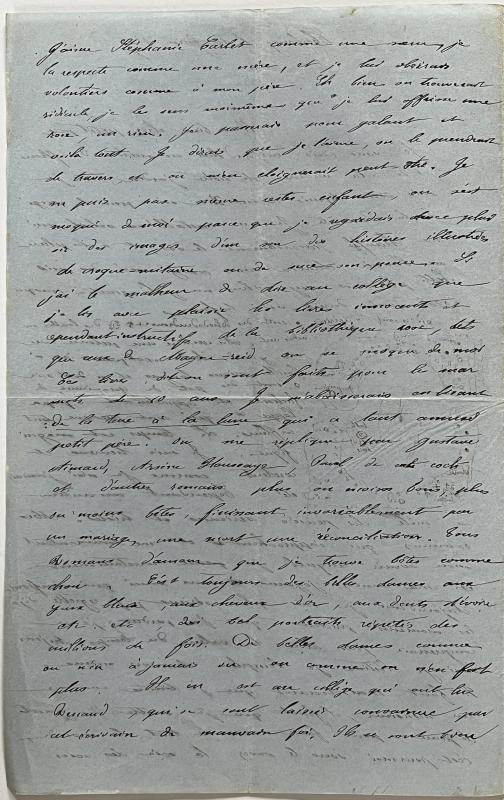 J'aime Stéphanie comme une sœur, je
la respecte comme une mère, et je lui obéirais
volontiers comme à mon père. Eh bien on trouverait
ridicule, je le sens moimême que je lui offrisse une
rose, un rien; je passerais pour galant et
voilà tout. Je dirais que je l'aime, on le prendrait
de travers, et on m'en éloignerait peut être. Je
ne puis pas même rester enfant, on s'est
moqué de moi parce que je regardais avec plai
sir des images d'un ou des histoires illustrées
de croque-mitaine ou de suce-son-pouce. Si
j'ai le malheur de dire au collège que
je lis avec plaisir les livres innocents et
cependant instructifs de la bibliothèque rose, tels
que ceux de Mayne-reid on se moque de moi
Ces livres dit-on sont faits pour les mar
mots de 10 ans. Je en lisant
de la terre à la lune qui a tant amusé
petit père; on me réplique pour gustave
aimard, Arsène Houssaye, Paul de cock
et d'autres romans plus ou moins bons, plus
ou moins bêtes, finissant invariablement par
un mariage, une mort une réconciliation. Tous
Romans d'amour que je trouve bêtes comme
chou. C'est toujours des belles dames aux
yeux bleus, aux cheveux d'or, aux dents d'ivoire
etc. etc. des portraits répétés des
millions de fois. De belles dames comme
on n'en a jamais vu ou comme on n'en fait
plus. Il en est au collège qui ont lu
Renaud qui se sont laissés convaincre par
cet écrivain de mauvaise foi. Ils se sont